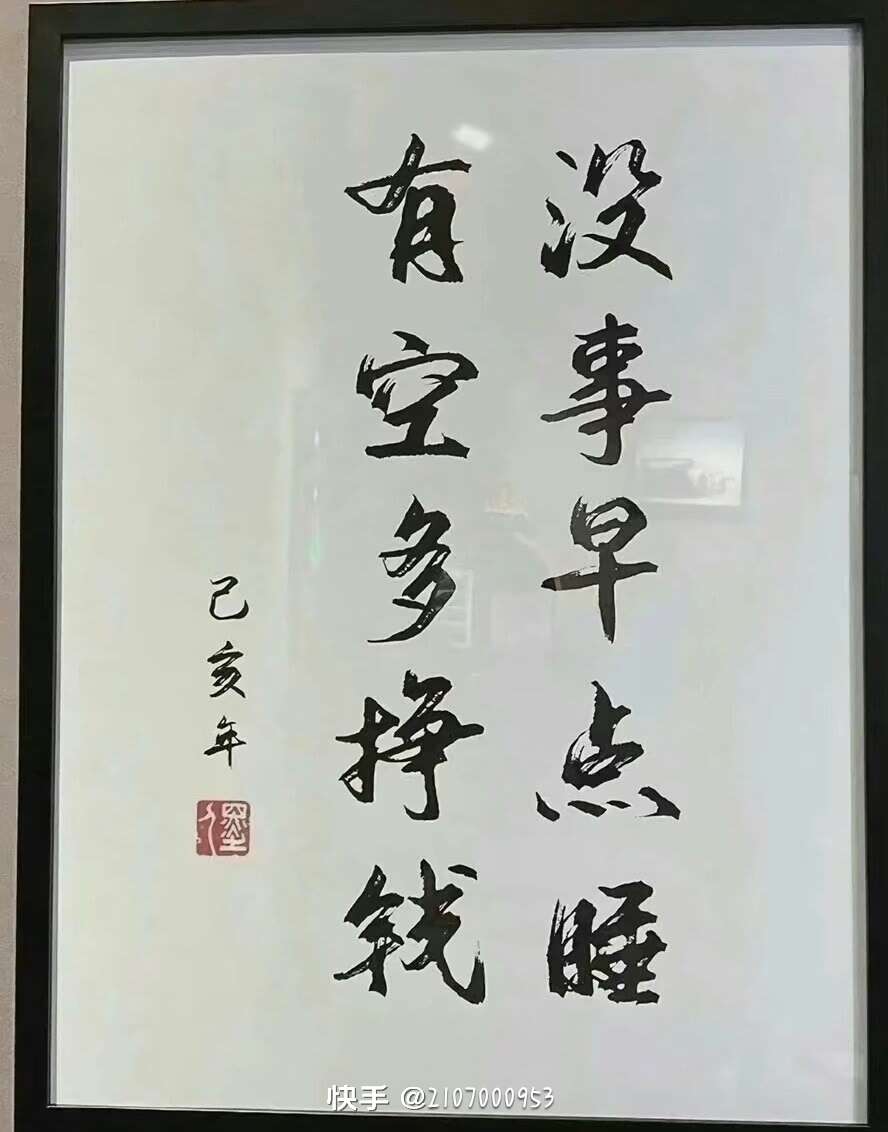 没事早点睡
有空多挣钱
己亥年
快手 @2107000953